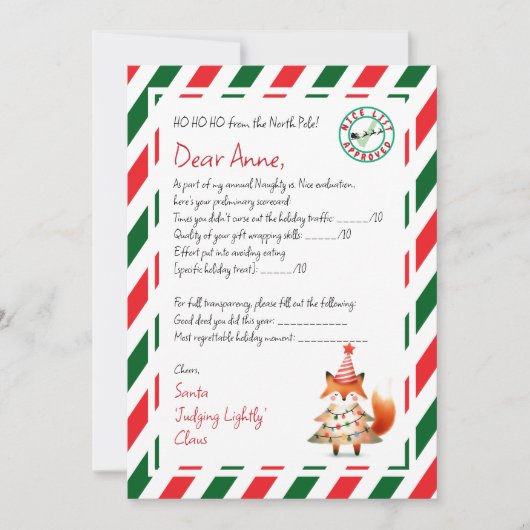 HO HO HO from the North Pole!
NICE LIST
APPROVED
Dear Anne,
As part of my annual Naughty vs. Nice evaluation,
here's your prelminary scorecard:
Times you didn't curse out the holiday traffic: ______/10
Quality of your gift wrapping skills: ______/10
Effort put into avoiding eating
[specific holiday treat]: ______/10
For full transparency, please fill out the following:
Good deed you did this year: ___________
Most regrettable holiday moment: ___________
Cheers,
Santa
'Judging Lightly'
Claus